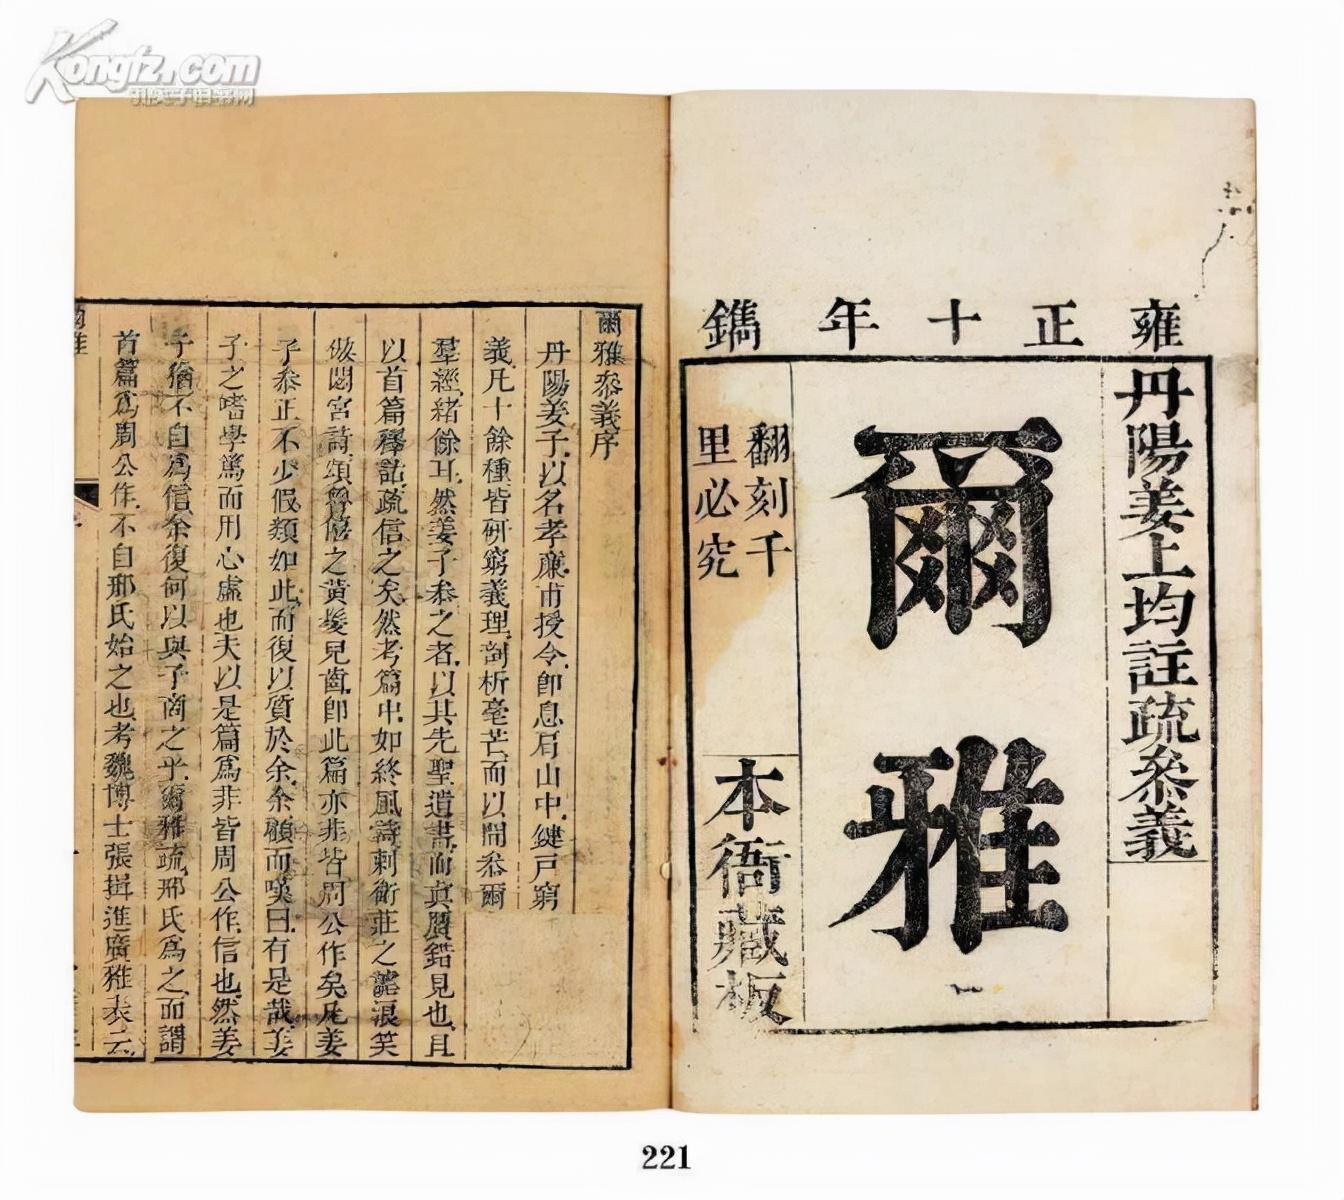 Kongfz.com
孔夫子旧书网
雍正十年鐫
丹陽姜上均註疏叅義
爾雅
翻刻千
里必究
本衙藏板
爾雅叅義序
丹陽姜子以名孝廉甫授令卽息肩山中鍵戸窮
義凡十餘種皆硏窮義理剖析毫芒而以閒叅爾
羣經緖餘耳然姜子叅之者以其先聖遺書而眞贋錯見也且
以首篇釋詁疏信之矣然考篇中如終風詩刺衛莊之謔浪笑
傲閟宮詩頌魯僖之黃髮兒齒卽此篇亦非皆周公作矣凡姜
子叅正不少假類如此而復以質於余余顧而嘆曰有是哉姜
子之嗜學篤而用心虛也夫以是篇爲非皆周公作信也然姜
子猶不自爲信余復何以與子商之乎爾雅疏邢氏爲之而謂
首篇爲周公作不自邢氏始之也考魏博士張揖進廣雅表云
爾雅
221